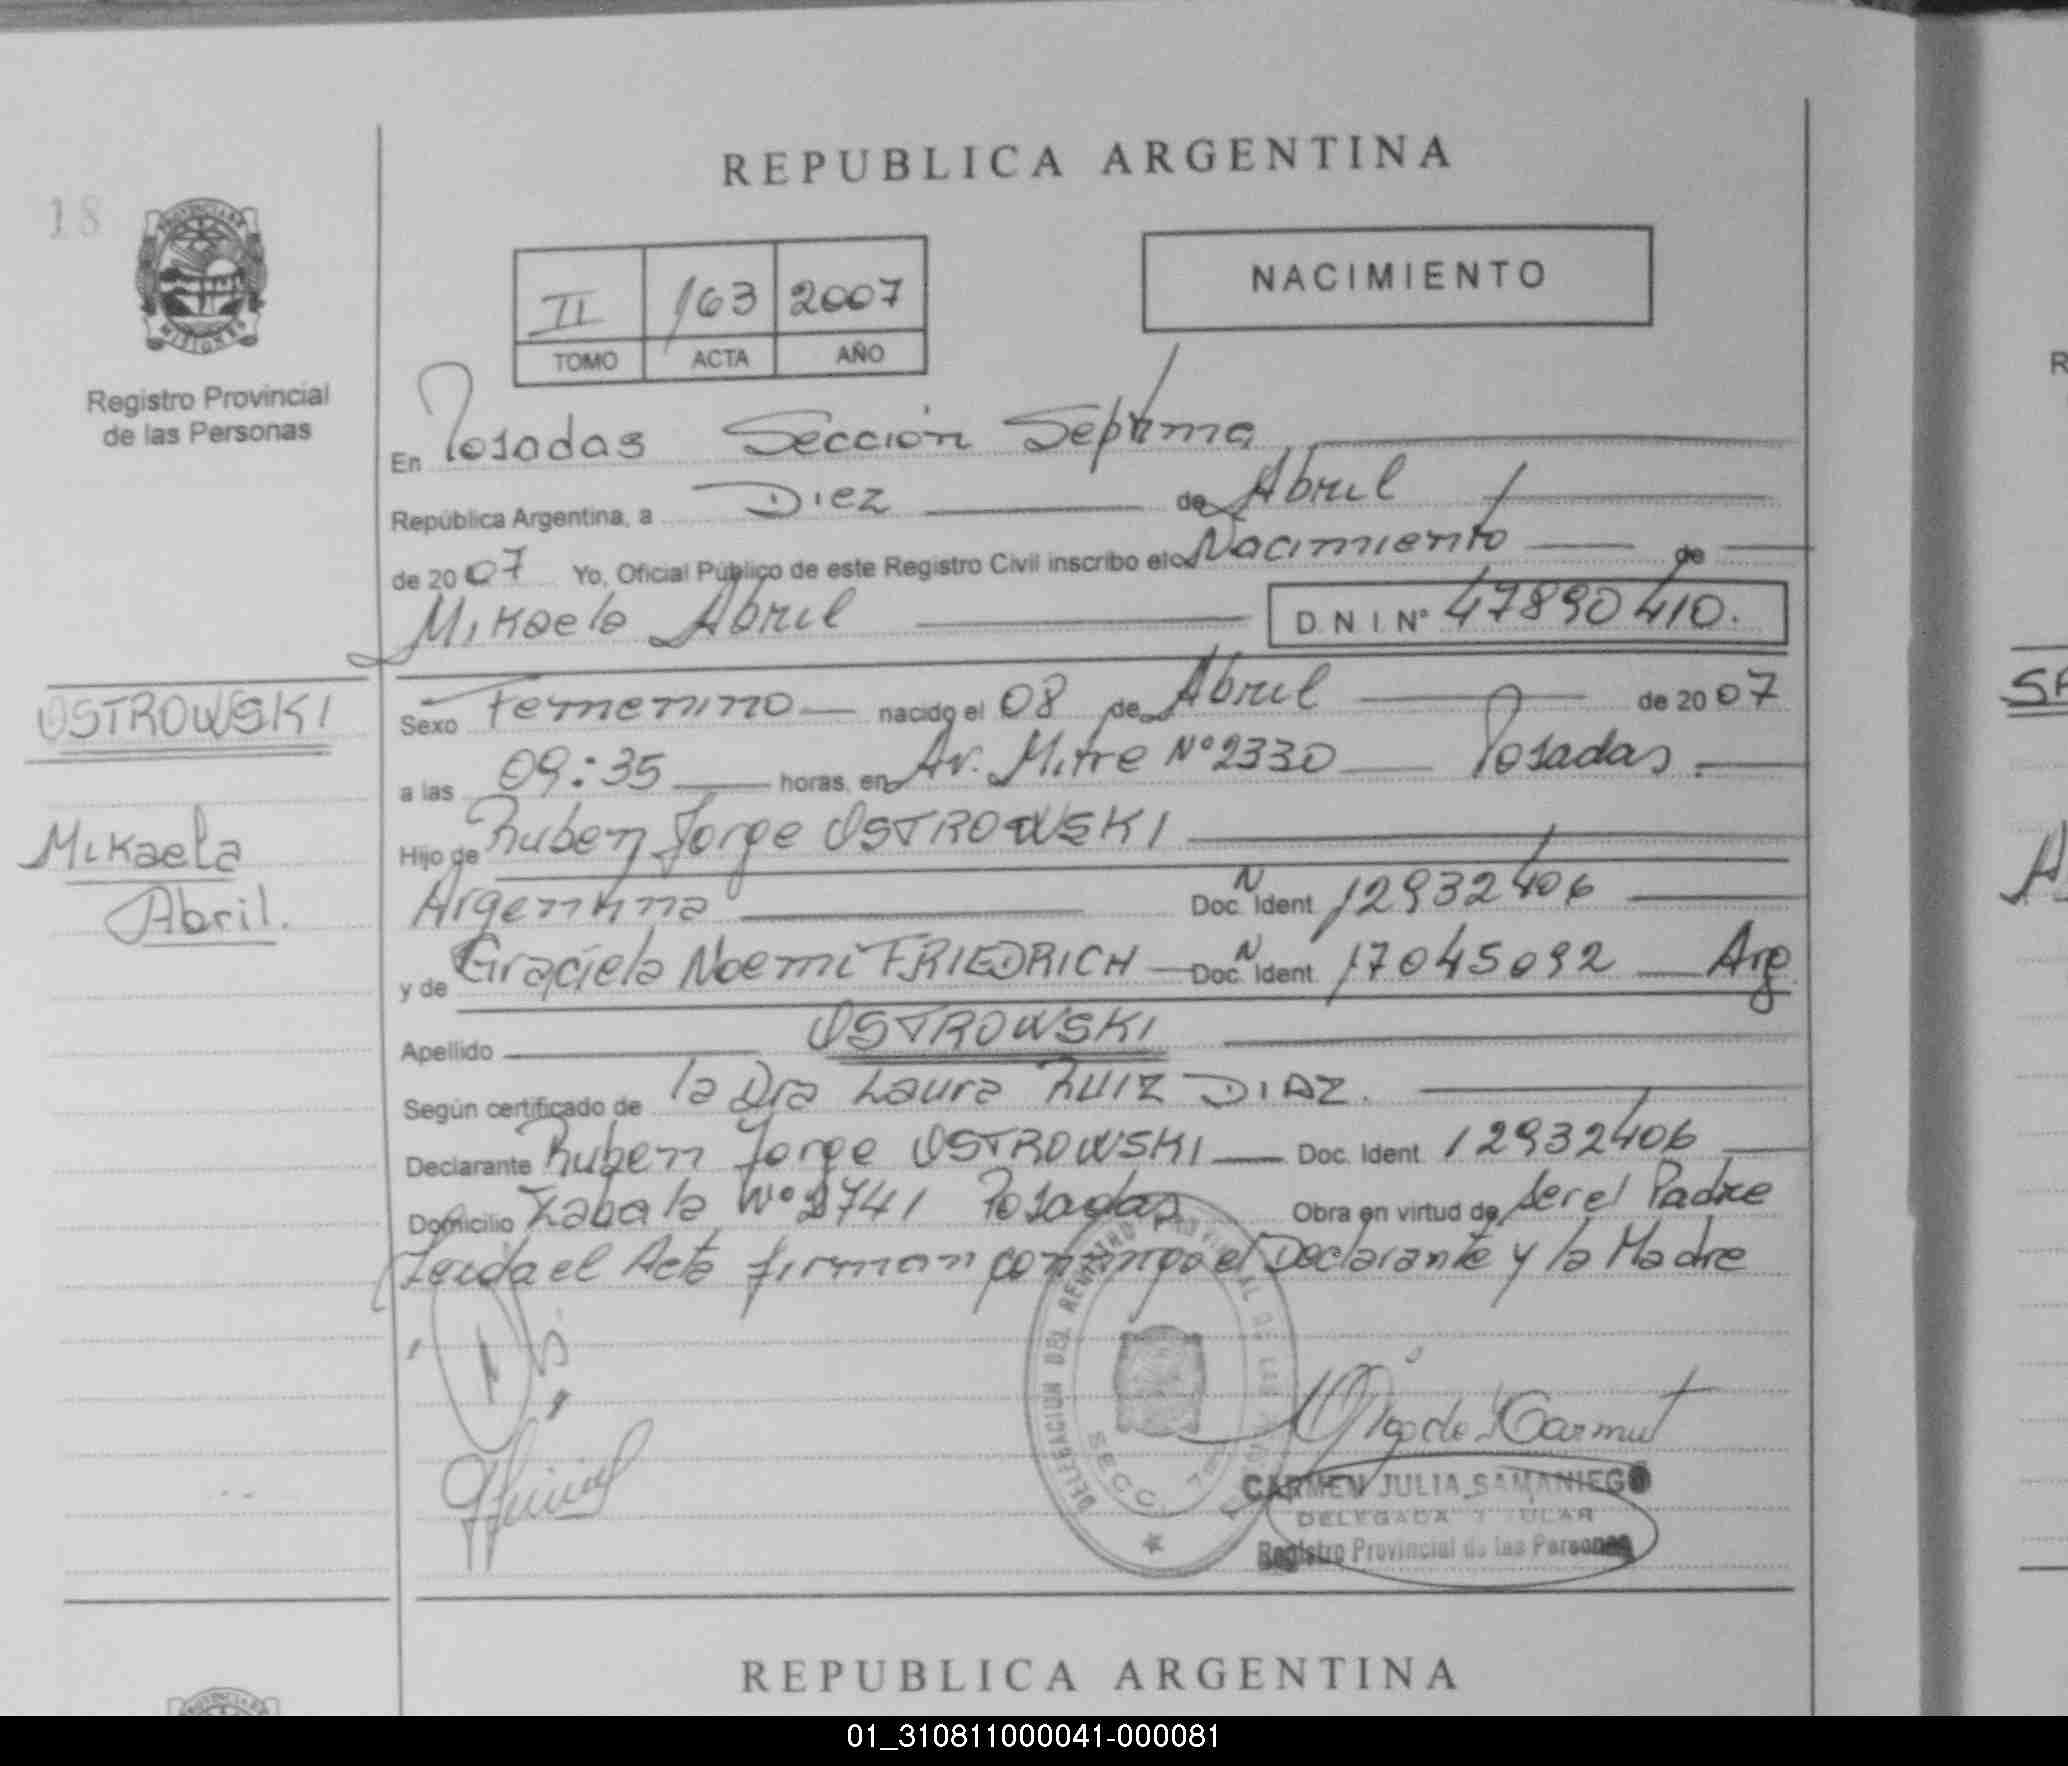 REPUBLICA ARGENTINA
18
PROVINCIA DE
MISIONES
Registro Provincial
de las Personas
II 163 2007
TOMO ACTA AÑO
NACIMIENTO
En Posadas Sección Septima
República Argentina, a Diez de Abril
de 2007 Yo, Oficial Público de este Registro Civil inscribo el Nacimiento de
Mikaela Abril D N I Nº 47890410.
OSTROWSKI
Mikaela
Abril.
Sexo Femenino nacido el 08 de Abril de 2007
a las 09:35 horas, en Av. Mitre Nº 2330 Posadas.
Hijo de Ruben Jorge OSTROWSKI
Argentina Doc. N Ident 12932406
y de Graciela Noemi FRIEDRICH Doc. N Ident. 17045092 Arg
Apellido OSTROWSKI
Según certificado de la Dra Laura RUIZ DIAZ.
Declarante Ruben Jorge OSTROWSKI Doc. Ident 12932406
Domicilio Zabala Nº 2741 Posadas Obra en virtud de ser el Padre
Leida el Acta firman conmigo el Declarante y la Madre
DELEGACION DEL REGISTRO PROVINCIAL DE LAS
SECC. 7
CARMEN JULIA SAMANIEGO
DELEGADA TITULAR
Registro Provincial de las Personas
REPUBLICA ARGENTINA
01_310811000041-000081